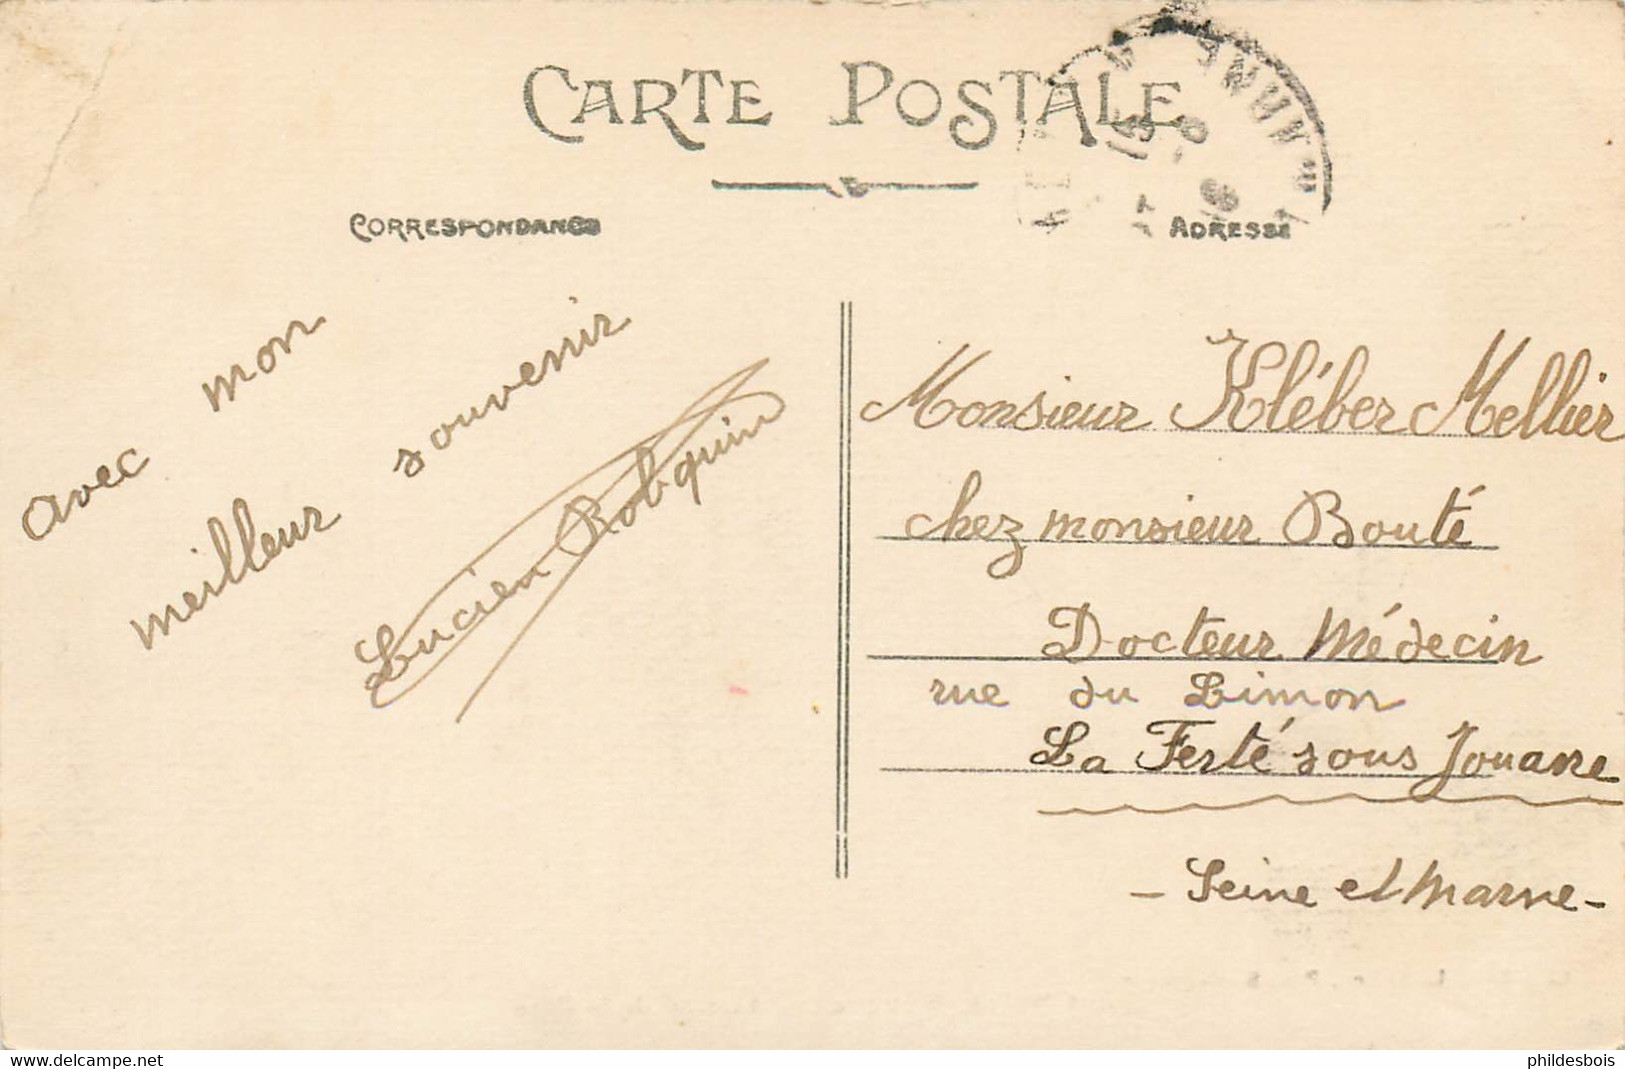 CARTE POSTALE
CORRESPONDANCE
ADRESSE
avec mon
meilleur souvenir
Lucien Robquin
Monsieur Kléber Mellier
chez monsieur Bouté
Docteur Médecin
rue du Limon
La Ferté sous Jouarre
- Seine et Marne -
www.delcampe.net
phildesbois